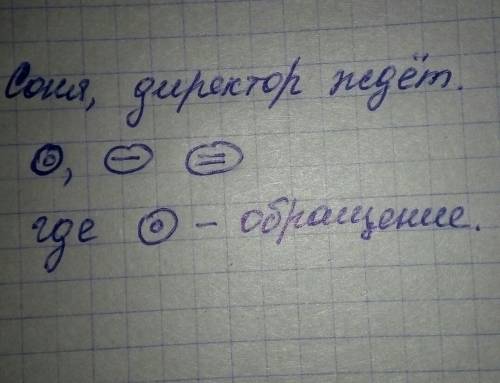 Соня, директор ждёт.
о, − =
где о − обращение.